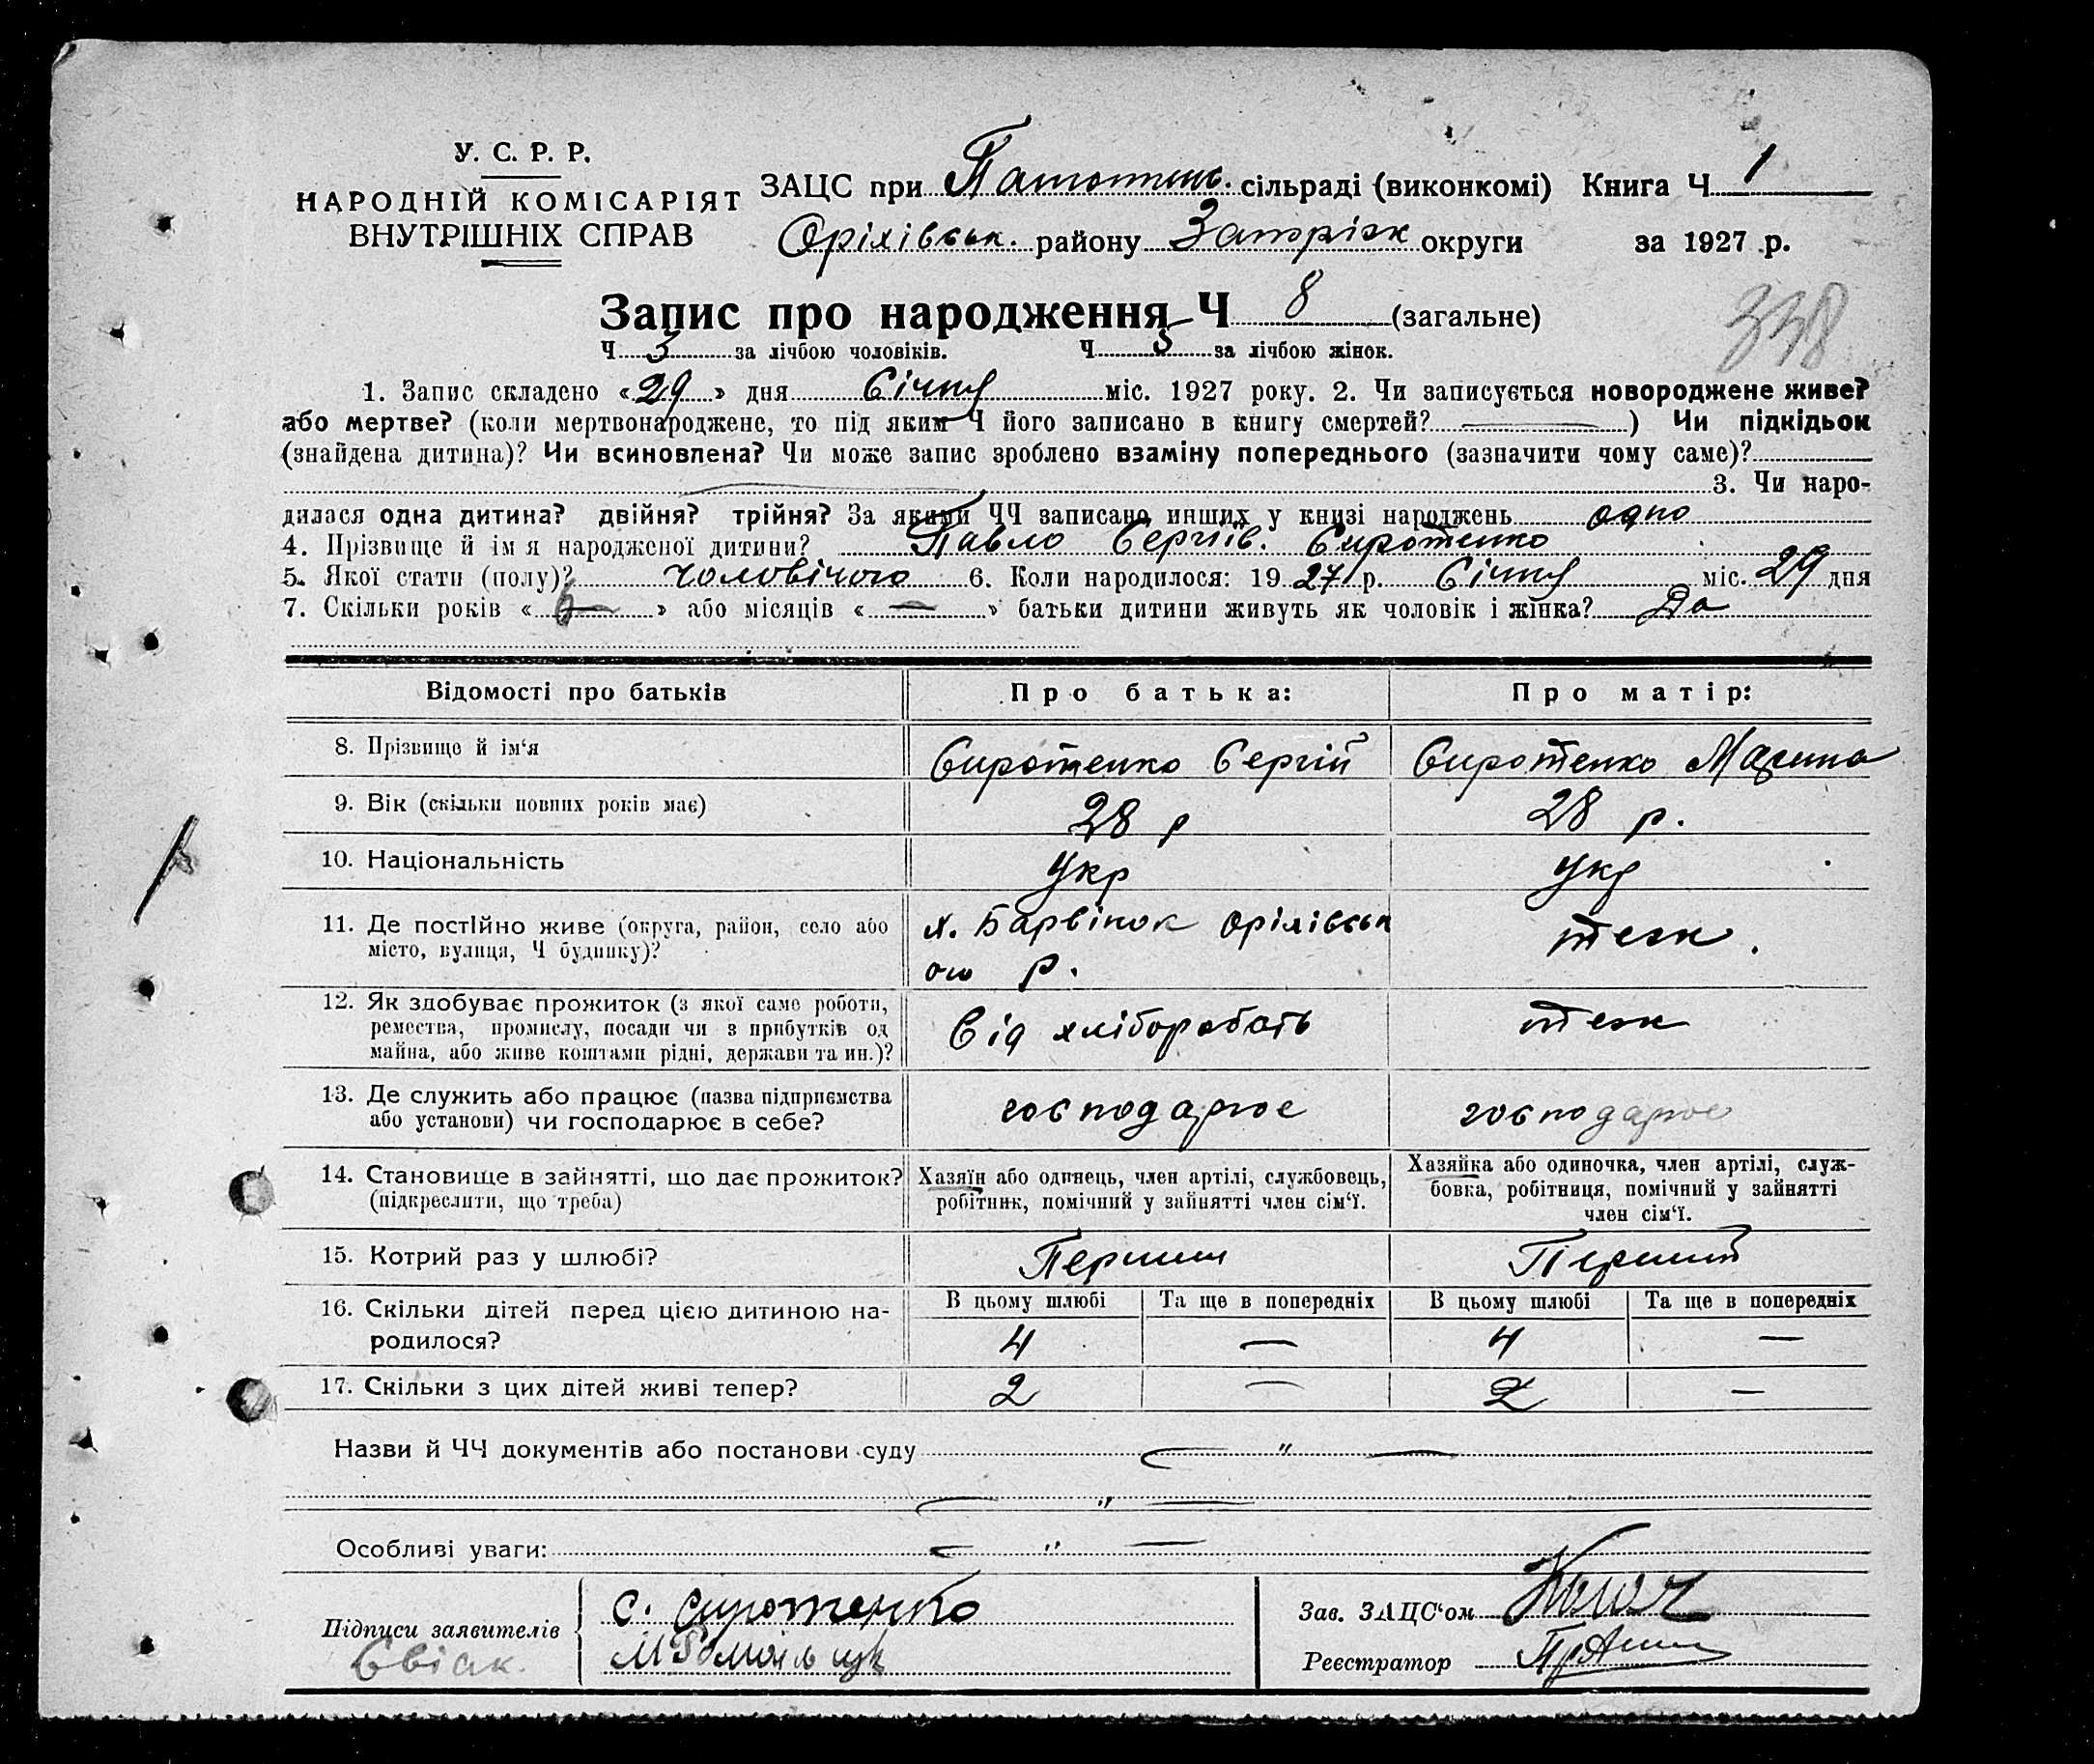 У. С. Р. Р.
НАРОДНІЙ КОМІСАРІЯТ
ВНУТРІШНІХ СПРАВ
ЗАЦС при сільраді (виконкомі) Книга Ч 1
Оріхівськ. району Запоріж округи за 1927 р.
Запис про народження Ч 8 (загальне)
338
Ч 3 за лічбою чоловіків. Ч 5 за лічбою жінок.
1. Запис складено «29» дня Січня міс. 1927 року. 2. Чи записується новороджене живе?
або мертве? (коли мертвонароджене, то під яким Ч його записано в книгу смертей? —) Чи підкідьок
(знайдена дитина)? Чи всиновлена? Чи може запис зроблено взаміну попереднього (зазначити чому саме)?
3. Чи наро-
дилася одна дитина? двійня? трійня? За якими ЧЧ записано инших у книзі народжень одно
4. Прізвище й ім я народженої дитини? Павло Сергіїв. Сиротенко
5. Якої стати (полу)? чоловічого 6. Коли народилося: 1927 р. Січня міс. 29 дня
7. Скільки років « » або місяців « — » батьки дитини живуть як чоловік і жінка? Да
Відомості про батьків Про батька: Про матір:
8. Прізвище й ім‘я Сиротенко Сергій Сиротенко Марина
9. Вік (скільки повних років має) 28 р 28 р.
10. Національність Укр Укр
11. Де постійно живе (округа, район, село або
місто, вулиця, Ч будинку)?
х. Барвінок Оріхівськ
ого р.
теж.
12. Як здобуває прожиток (з якої саме роботи,
ремества, промислу, посади чи з прибутків од
майна, або живе коштами рідні, держави та ин.)?
Від хліборобств
теж
13. Де служить або працює (назва підприємства
або установи) чи господарює в себе?
господарює
господарює
14. Становище в зайнятті, що дає прожиток?
(підкреслити, що треба)
Хазяїн або одинець, член артілі, службовець,
робітник, помічний у зайнятті член сім‘ї.
Хазяйка або одиночка, член артілі, служ-
бовка, робітниця, помічний у зайнятті
член сім‘ї.
15. Котрий раз у шлюбі? Перший Перший
16. Скільки дітей перед цією дитиною на-
родилося?
В цьому шлюбі Та ще в попередніх В цьому шлюбі Та ще в попередніх
4 — 4 —
17. Скільки з цих дітей живі тепер? 2 — 2 —
Назви й ЧЧ документів або постанови суду — " —
— " —
Особливі уваги: — " —
Підписи заявителів
С. Сиротенко
Зав. ЗАЦС‘ом
Реєстратор